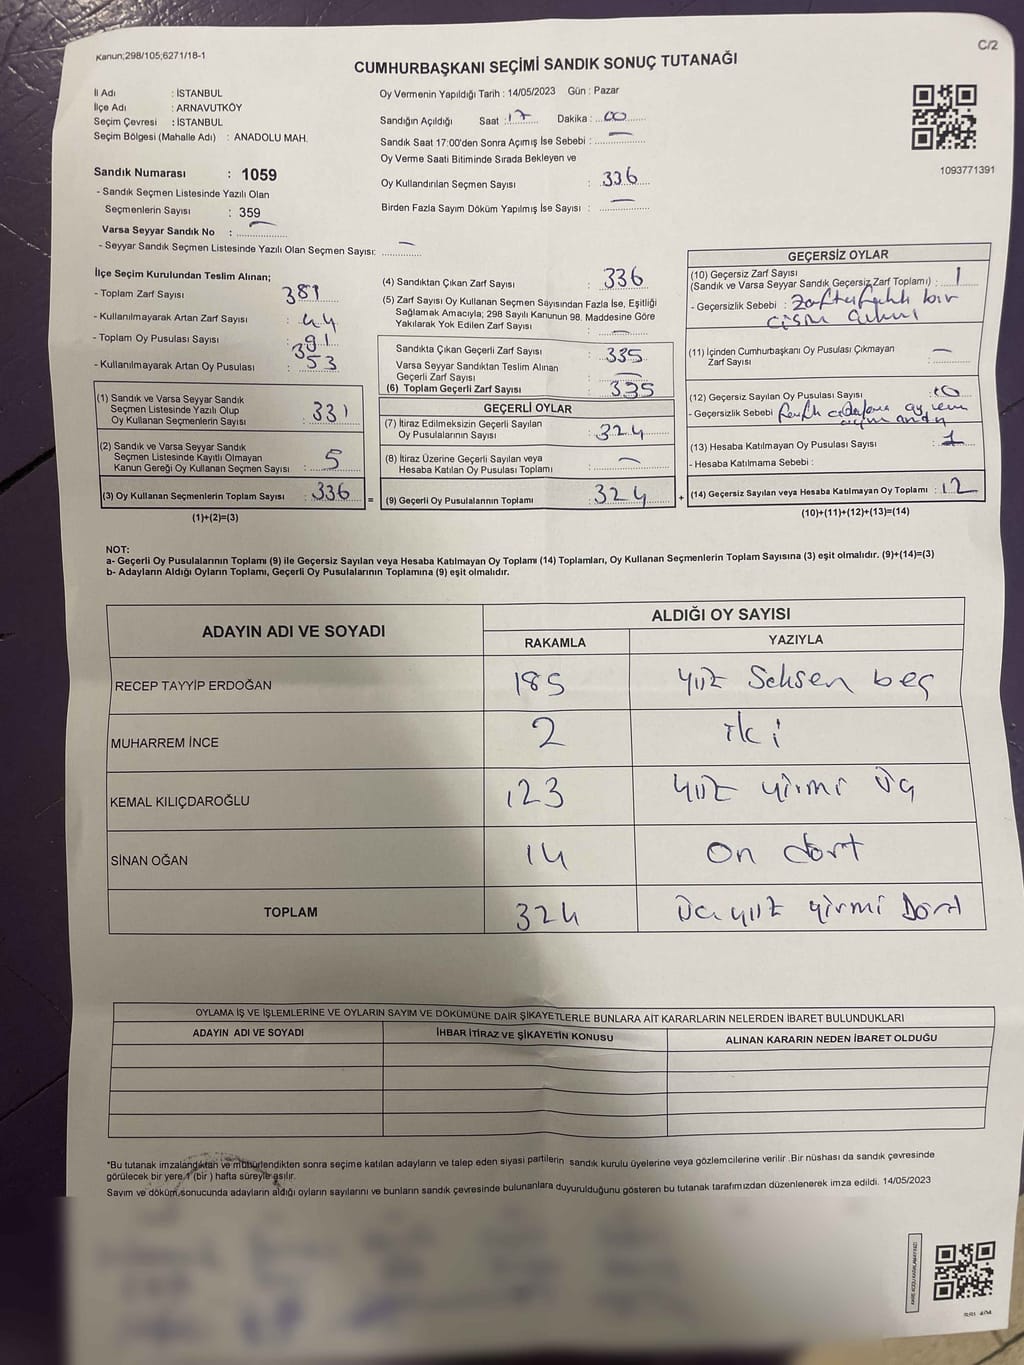 Kanun;298/105;6271/18-1
C/2
CUMHURBAŞKANI SEÇİMİ SANDIK SONUÇ TUTANAĞI
İl Adı : İSTANBUL
İlçe Adı : ARNAVUTKÖY
Seçim Çevresi : İSTANBUL
Seçim Bölgesi (Mahalle Adı) : ANADOLU MAH.
Sandık Numarası : 1059
- Sandık Seçmen Listesinde Yazılı Olan
Seçmenlerin Sayısı : 359
Varsa Seyyar Sandık No : —
- Seyyar Sandık Seçmen Listesinde Yazılı Olan Seçmen Sayısı: —
Oy Vermenin Yapıldığı Tarih : 14/05/2023 Gün : Pazar
Sandığın Açıldığı Saat : 17 Dakika : 00
Sandık Saat 17:00'den Sonra Açımış İse Sebebi : —
Oy Verme Saati Bitiminde Sırada Bekleyen ve
Oy Kullandırılan Seçmen Sayısı : 336
Birden Fazla Sayım Döküm Yapılmış İse Sayısı : —
1093771391
İlçe Seçim Kurulundan Teslim Alınan;
- Toplam Zarf Sayısı 381
- Kullanılmayarak Artan Zarf Sayısı : 44
- Toplam Oy Pusulası Sayısı : 391
- Kullanılmayarak Artan Oy Pusulası : 53
(1) Sandık ve Varsa Seyyar Sandık
Seçmen Listesinde Yazılı Olup
Oy Kullanan Seçmenlerin Sayısı : 331
(2) Sandık ve Varsa Seyyar Sandık
Seçmen Listesinde Kayıtlı Olmayan
Kanun Gereği Oy Kullanan Seçmen Sayısı : 5
(3) Oy Kullanan Seçmenlerin Toplam Sayısı : 336
(1)+(2)=(3)
=
(4) Sandıktan Çıkan Zarf Sayısı : 336
(5) Zarf Sayısı Oy Kullanan Seçmen Sayısından Fazla İse, Eşitliği
Sağlamak Amacıyla; 298 Sayılı Kanunun 98. Maddesine Göre
Yakılarak Yok Edilen Zarf Sayısı : —
Sandıkta Çıkan Geçerli Zarf Sayısı : 335
Varsa Seyyar Sandıktan Teslim Alınan
Geçerli Zarf Sayısı : —
(6) Toplam Geçerli Zarf Sayısı : 335
GEÇERLİ OYLAR
(7) İtiraz Edilmeksizin Geçerli Sayılan
Oy Pusulalarının Sayısı : 324
(8) İtiraz Üzerine Geçerli Sayılan veya
Hesaba Katılan Oy Pusulası Toplamı : —
(9) Geçerli Oy Pusulalarının Toplamı : 324
+
GEÇERSİZ OYLAR
(10) Geçersiz Zarf Sayısı
(Sandık ve Varsa Seyyar Sandık Geçersiz Zarf Toplamı) : 1
- Geçersizlik Sebebi : bir
(11) İçinden Cumhurbaşkanı Oy Pusulası Çıkmayan
Zarf Sayısı : —
(12) Geçersiz Sayılan Oy Pusulası Sayısı : 10
- Geçersizlik Sebebi
(13) Hesaba Katılmayan Oy Pusulası Sayısı : 1
- Hesaba Katılmama Sebebi :
(14) Geçersiz Sayılan veya Hesaba Katılmayan Oy Toplamı : 12
(10)+(11)+(12)+(13)=(14)
NOT:
a- Geçerli Oy Pusulalarının Toplamı (9) ile Geçersiz Sayılan veya Hesaba Katılmayan Oy Toplamı (14) Toplamları, Oy Kullanan Seçmenlerin Toplam Sayısına (3) eşit olmalıdır. (9)+(14)=(3)
b- Adayların Aldığı Oyların Toplamı, Geçerli Oy Pusulalarının Toplamına (9) eşit olmalıdır.
ADAYIN ADI VE SOYADI
ALDIĞI OY SAYISI
RAKAMLA YAZIYLA
RECEP TAYYİP ERDOĞAN 185 yüz Seksen beş
MUHARREM İNCE 2 iki
KEMAL KILIÇDAROĞLU 123 yüz yirmi üç
SİNAN OĞAN 14 on dört
TOPLAM 324 üçyüz yirmi Dört
OYLAMA İŞ VE İŞLEMLERİNE VE OYLARIN SAYIM VE DÖKÜMÜNE DAİR ŞİKAYETLERLE BUNLARA AİT KARARLARIN NELERDEN İBARET BULUNDUKLARI
ADAYIN ADI VE SOYADI İHBAR İTİRAZ VE ŞİKAYETİN KONUSU ALINAN KARARIN NEDEN İBARET OLDUĞU
*Bu tutanak imzalandıktan ve mühürlendikten sonra seçime katılan adayların ve talep eden siyasi partilerin sandık kurulu üyelerine veya gözlemcilerine verilir .Bir nüshası da sandık çevresinde
görülecek bir yere,1 (bir ) hafta süreyle asılır.
Sayım ve döküm sonucunda adayların aldığı oyların sayılarını ve bunların sandık çevresinde bulunanlara duyurulduğunu gösteren bu tutanak tarafımızdan düzenlenerek imza edildi. 14/05/2023